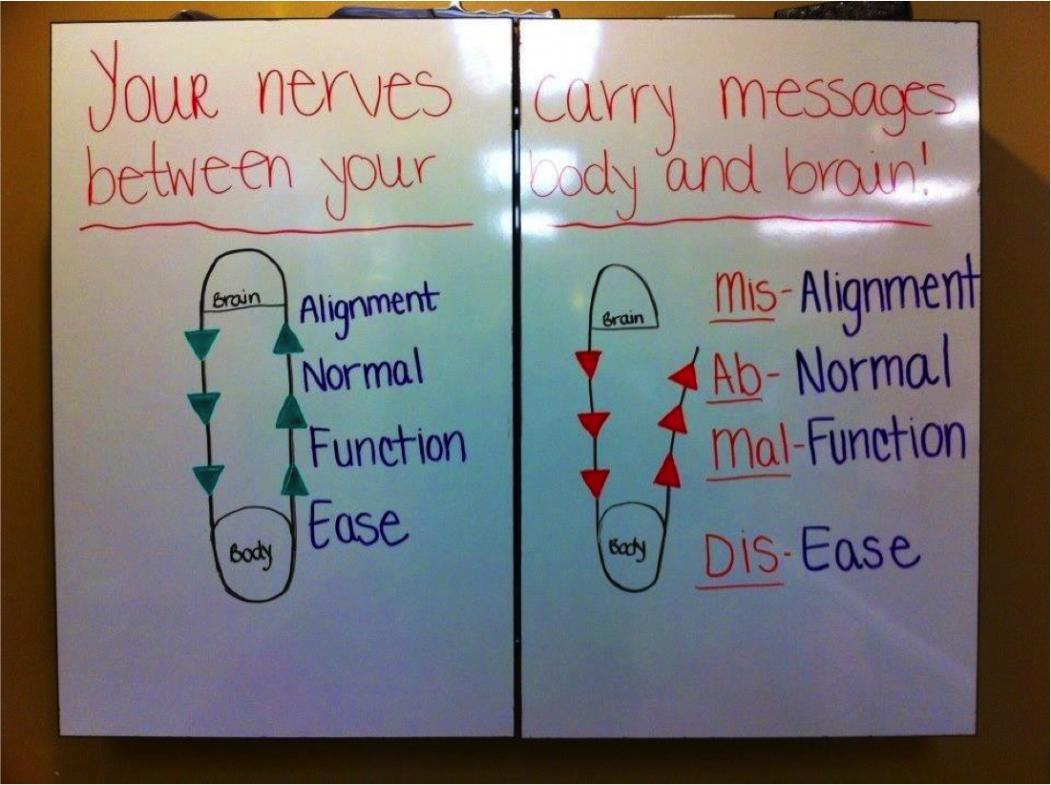 Your nerves carry messages
between your body and brain!
Brain
Alignment
Normal
Function
Ease
Body
Brain
Mis-Alignment
Ab-Normal
Mal-Function
Dis-Ease
Body